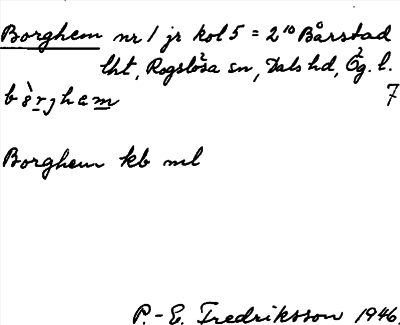 Borghem nr 1 jr kol 5 = 2¹⁰ Bårstad
lht, Rogslösa sn, Dals hd, Ög. l.
7
bòrjham
Borghem kb ml
P.-E. Fredriksson 1946.